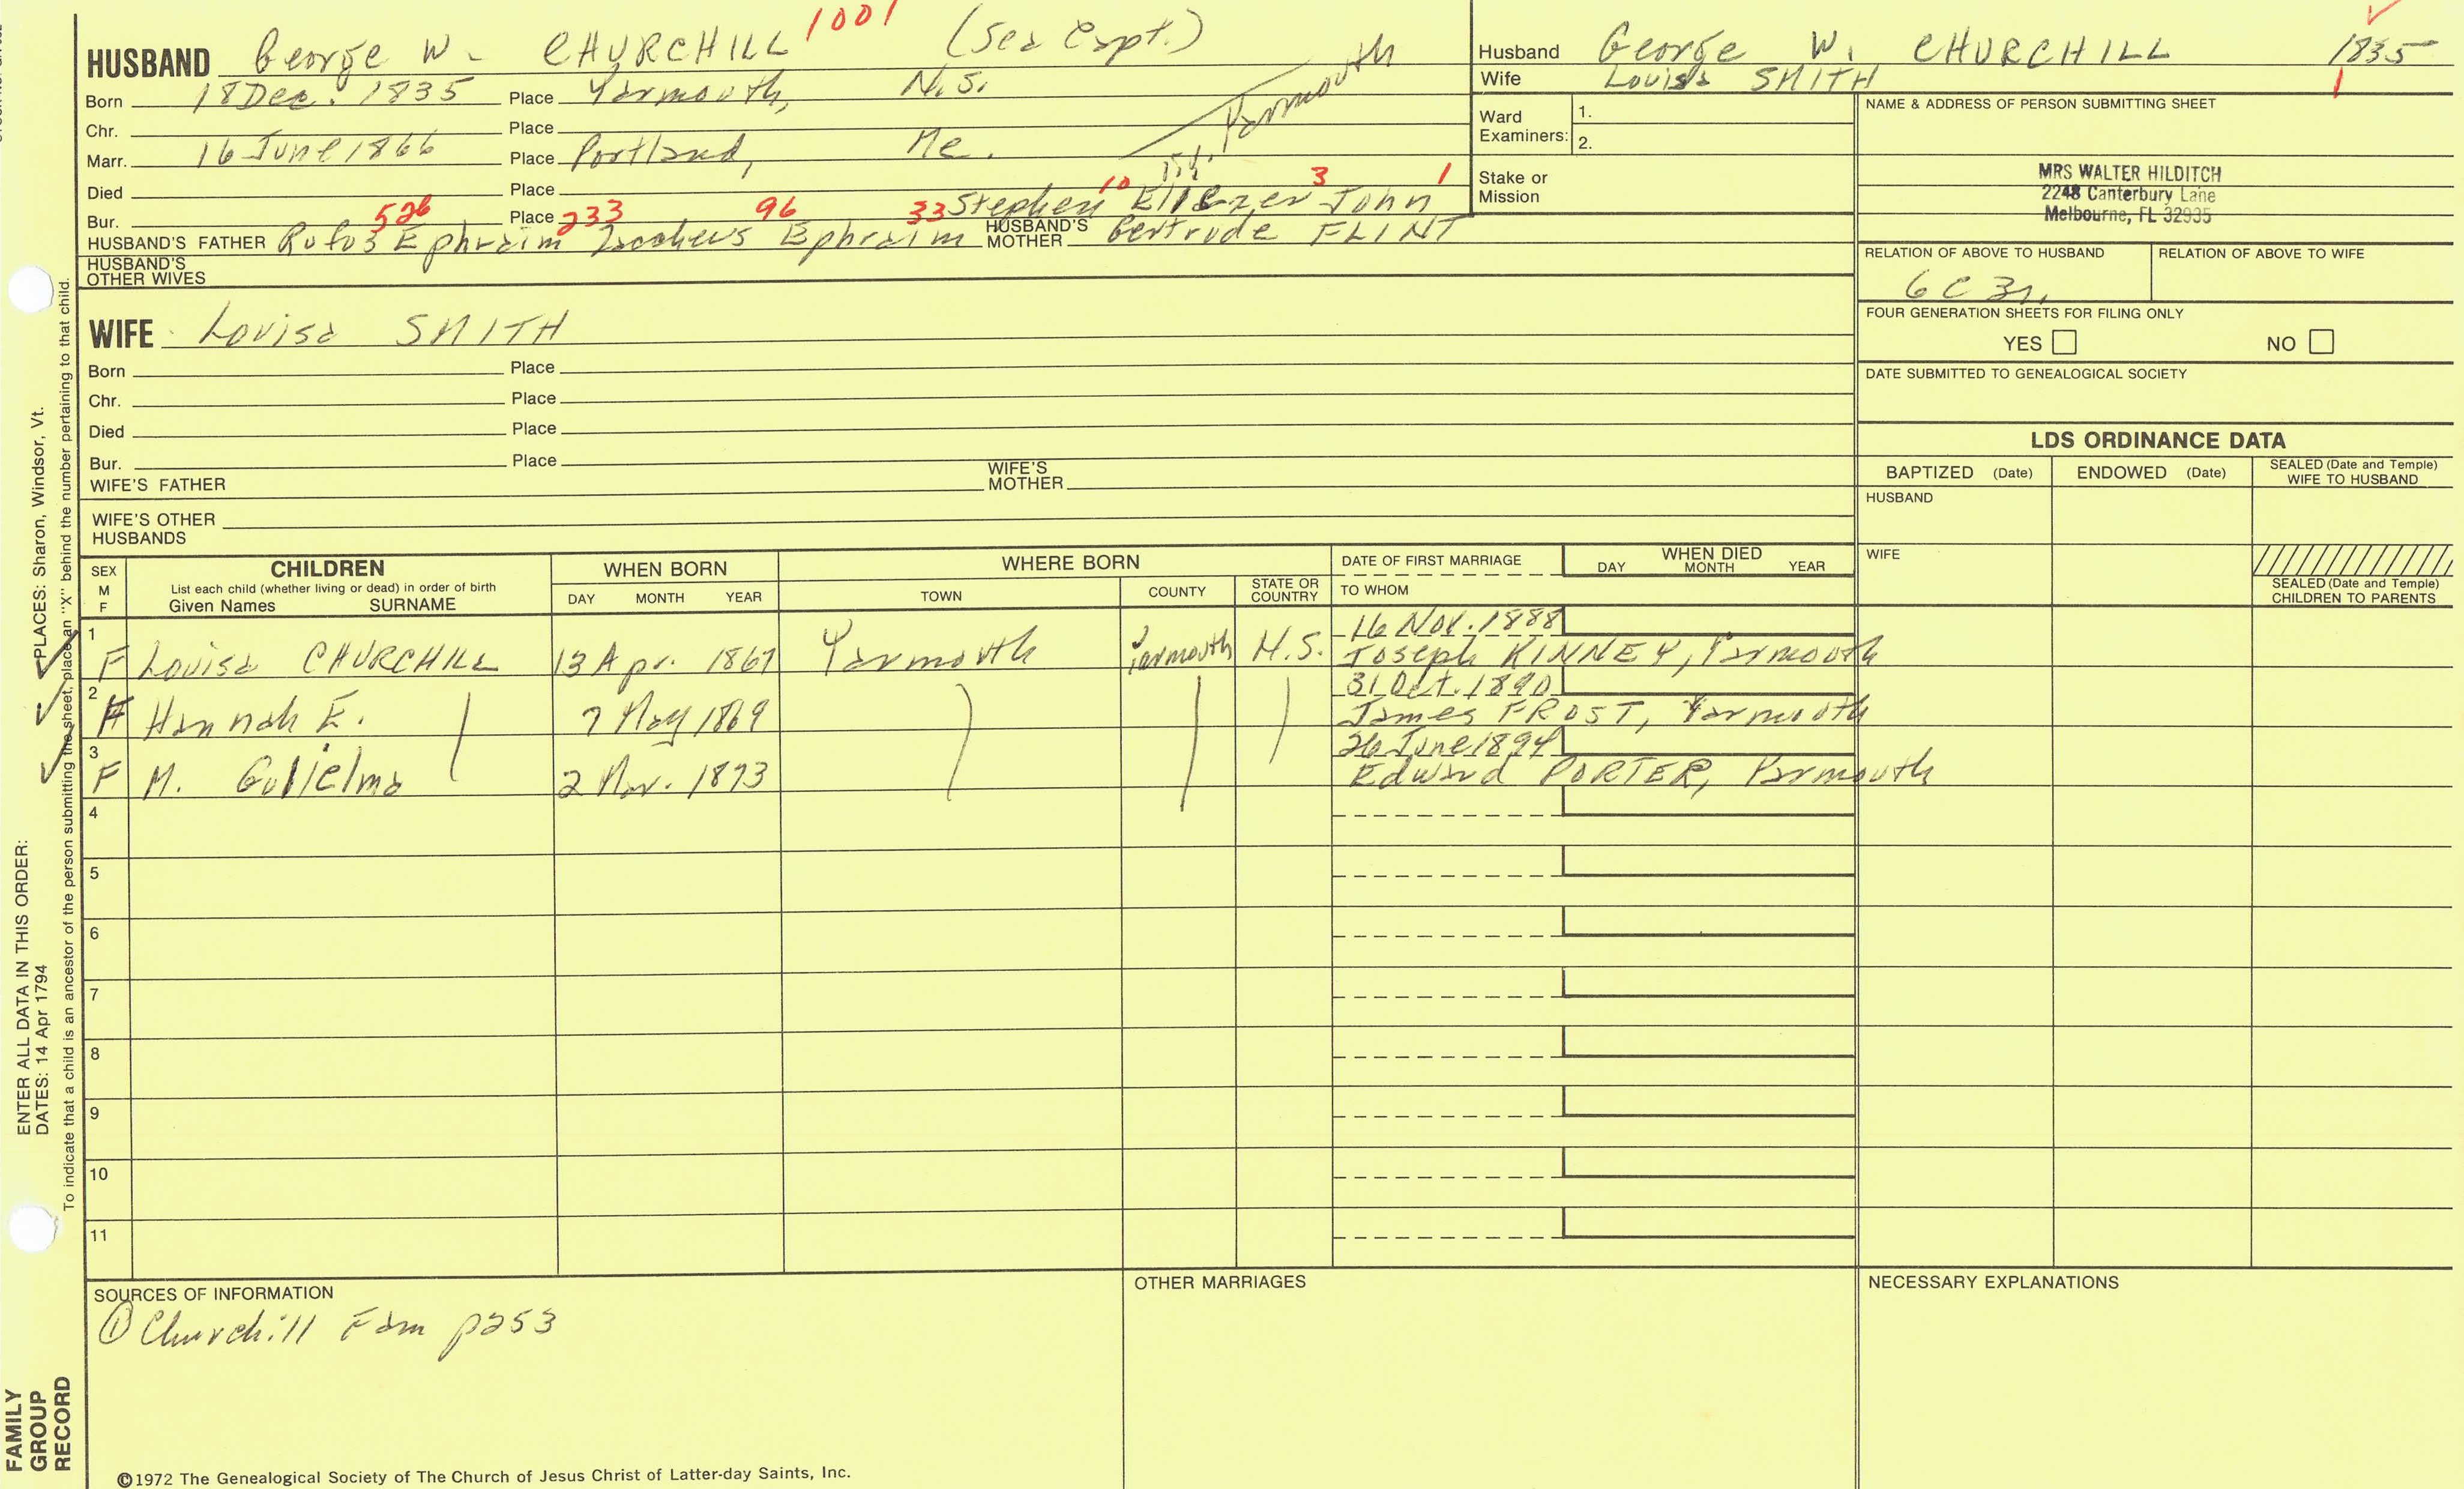 HUSBAND George W. CHURCHILL 1001 (Sea Capt.)
Born 18 Dec. 1835 Place Yarmouth, N.S.
Chr. Place Yarmouth
Marr. 16 June 1866 Place Portland, Me.
Died Place
Bur. Place
526 233 96 33 Stephen 10 Eliezer 3 John 1
HUSBAND'S FATHER Rufus Ephraim Zacheus Ephraim HUSBAND'S MOTHER Gertrude FLINT
HUSBAND'S OTHER WIVES
WIFE Louisa SMITH
Born Place
Chr. Place
Died Place
Bur. Place
WIFE'S FATHER WIFE'S MOTHER
WIFE'S OTHER HUSBANDS
Husband George W. CHURCHILL 1835
Wife Louisa SMITH 1
Ward Examiners: 1.
2.
Stake or Mission
NAME & ADDRESS OF PERSON SUBMITTING SHEET
MRS WALTER HILDITCH
2248 Canterbury Lane
Melbourne, FL 32935
RELATION OF ABOVE TO HUSBAND RELATION OF ABOVE TO WIFE
6C 3r.
FOUR GENERATION SHEETS FOR FILING ONLY
YES NO
DATE SUBMITTED TO GENEALOGICAL SOCIETY
LDS ORDINANCE DATA
BAPTIZED (Date) ENDOWED (Date) SEALED (Date and Temple) WIFE TO HUSBAND
HUSBAND
WIFE
SEALED (Date and Temple) CHILDREN TO PARENTS
SEX M F CHILDREN WHEN BORN WHERE BORN DATE OF FIRST MARRIAGE WHEN DIED
List each child (whether living or dead) in order of birth DAY MONTH YEAR
Given Names SURNAME DAY MONTH YEAR TOWN COUNTY STATE OR COUNTRY TO WHOM
1 16 Nov. 1888
F Louisa CHURCHILL 13 Apr. 1867 Yarmouth Yarmouth N.S. Joseph KINNEY, Yarmouth
2 31 Oct. 1890
F Hannah E. 7 May 1869 James FROST, Yarmouth
3 26 June 1894
F M. Gulielma 2 Nov. 1873 Edward PORTER, Yarmouth
4
5
6
7
8
9
10
11
SOURCES OF INFORMATION OTHER MARRIAGES NECESSARY EXPLANATIONS
① Churchill Fam p253
©1972 The Genealogical Society of The Church of Jesus Christ of Latter-day Saints, Inc.
FAMILY GROUP RECORD
ENTER ALL DATA IN THIS ORDER:
DATES: 14 Apr 1794 PLACES: Sharon, Windsor, Vt.
To indicate that a child is an ancestor of the person submitting the sheet, place an "X" behind the number pertaining to that child.